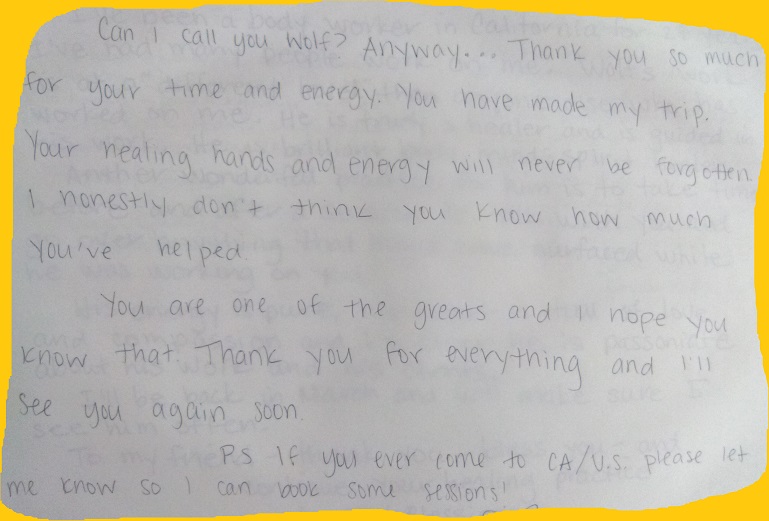 Can I call you Wolf? Anyway... Thank you so much
for your time and energy. You have made my trip.
Your healing hands and energy will never be forgotten.
I honestly don't think you know how much
you've helped.
You are one of the greats and I hope you
know that. Thank you for everything and I'll
see you again soon.
PS If you ever come to CA/U.S. please let
me know so I can book some sessions!